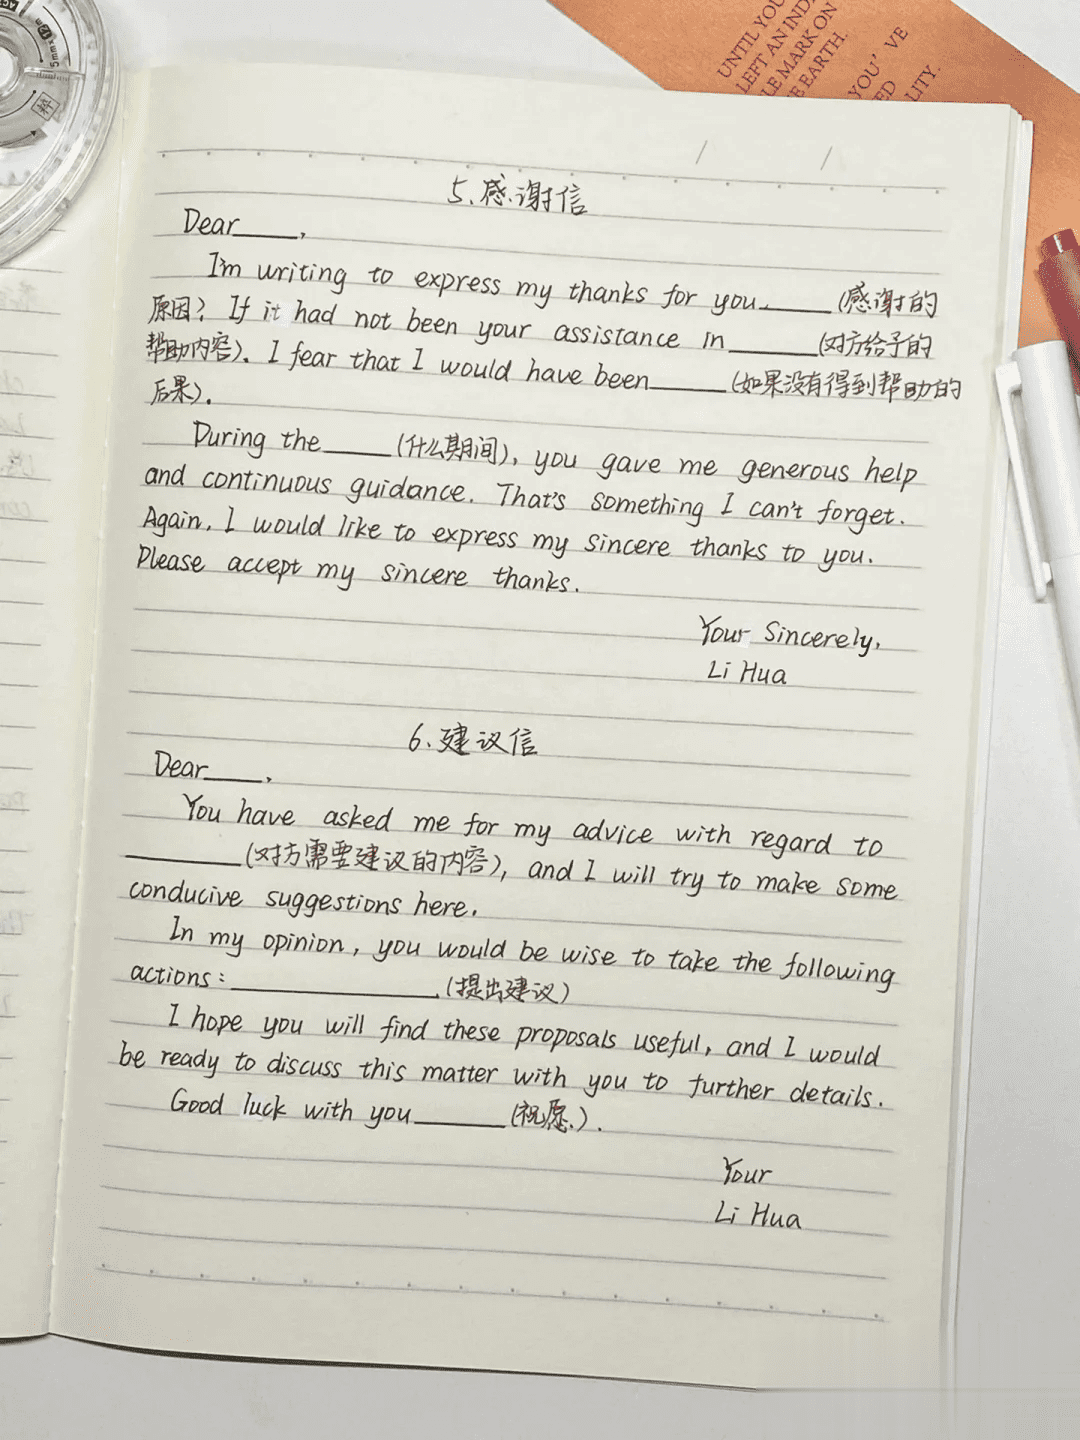 UNTIL YOU
LEFT AN IND
LE MARK ON
E EARTH.
YOU'VE
ED
LITY.
5mm×
5.感谢信
Dear____,
I'm writing to express my thanks for you____(感谢的
原因? If it had not been your assistance in____(对方给予的
帮助内容). I fear that I would have been____(如果没有得到帮助的
后果).
During the____(什么期间), you gave me generous help
and continuous guidance. That's something I can't forget.
Again, I would like to express my sincere thanks to you.
Please accept my sincere thanks.
Your Sincerely,
Li Hua
6.建议信
Dear____,
You have asked me for my advice with regard to
____(对方需要建议的内容), and I will try to make some
conducive suggestions here.
In my opinion, you would be wise to take the following
actions:____.(提出建议)
I hope you will find these proposals useful, and I would
be ready to discuss this matter with you to further details.
Good luck with you____(祝愿.).
Your
Li Hua